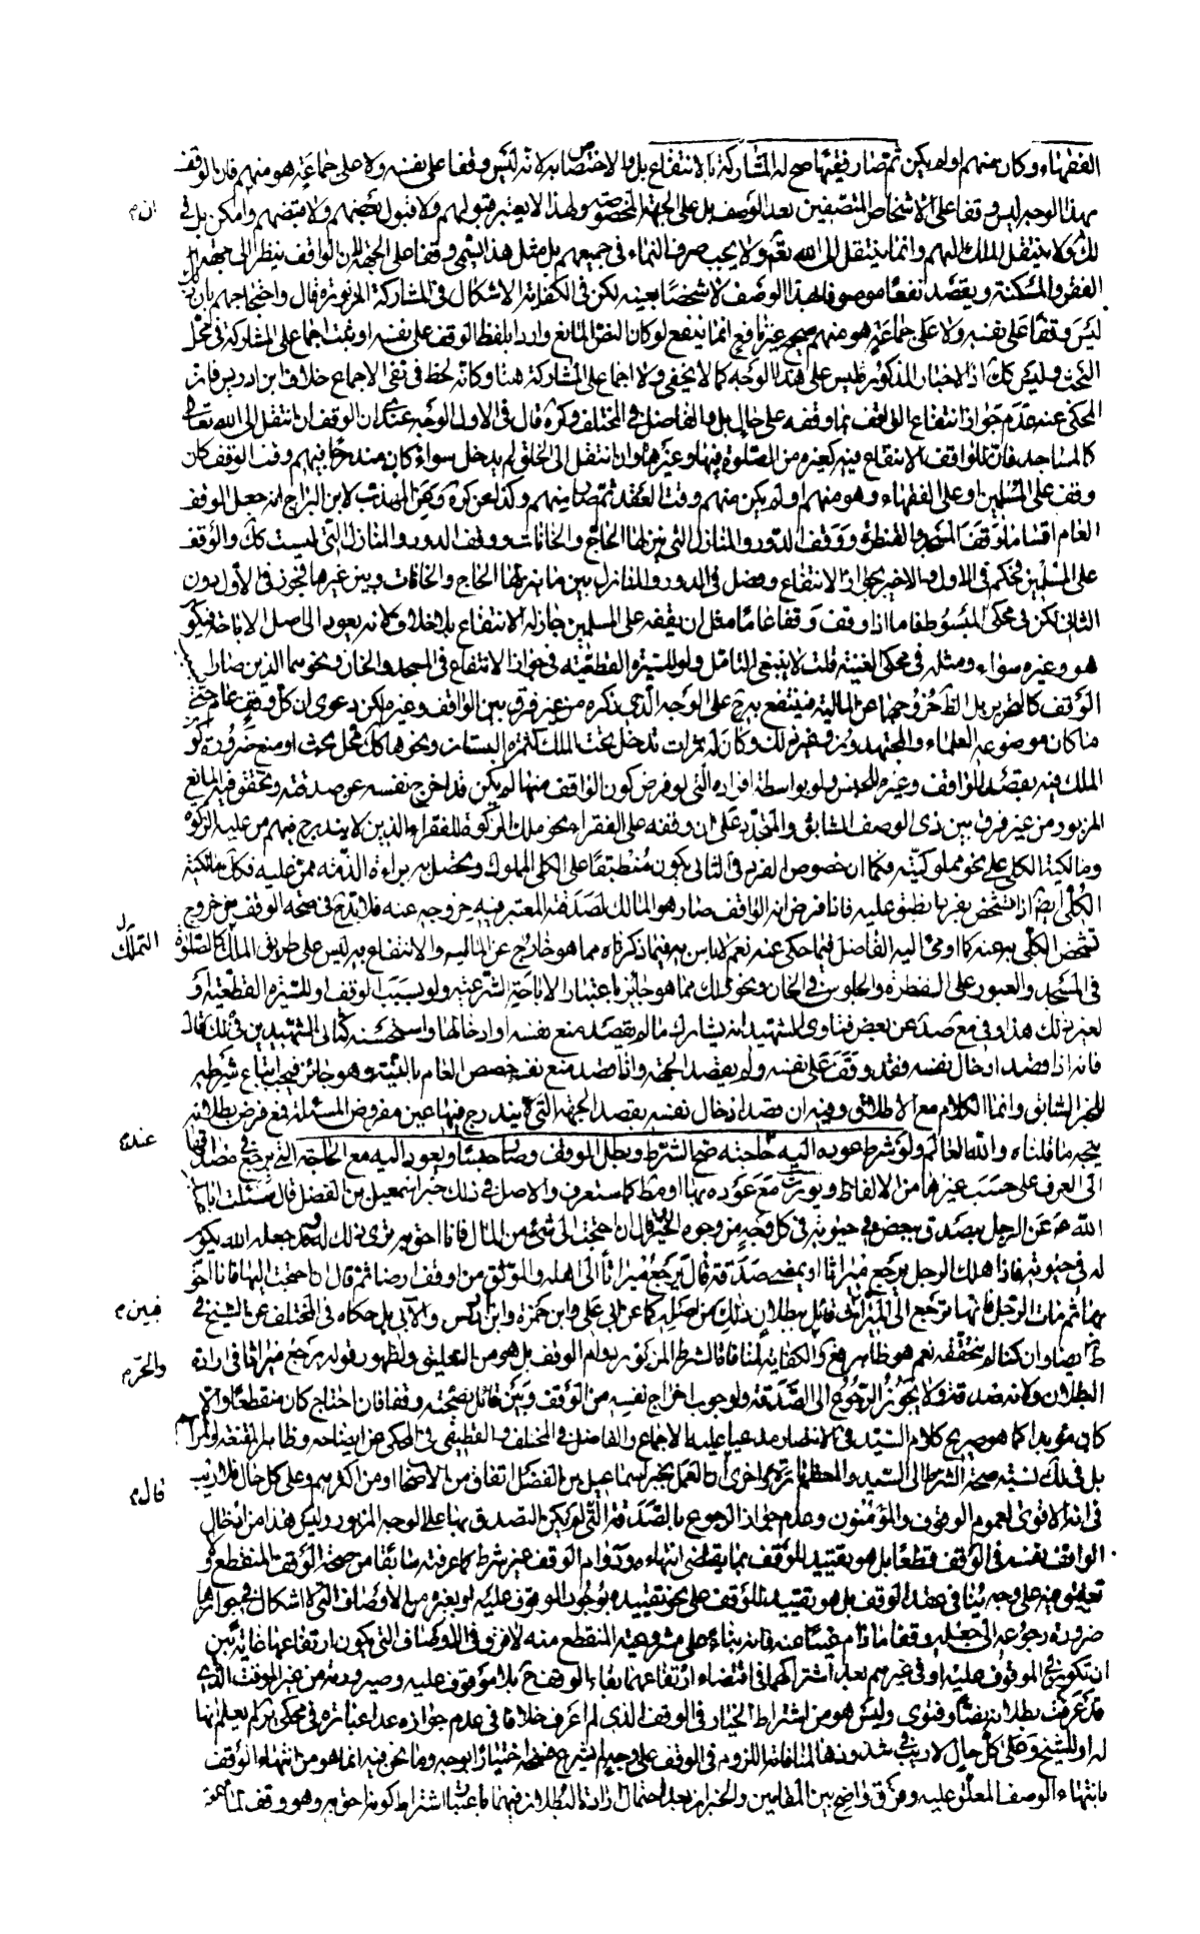 الفقهاء وكان منهم او لم يكن ثم صار فقيها صح له المشاركة بالانتفاع بل والاختصاص به لانه ليس وقفا على نفسه ولا على جماعة هو منهم فان الوقف
بهذا الوجه ليس وقفا على الاشخاص المتصفين بعد الوصف بل على الجهة المخصوصة ولهذا لا يعتبر قبولهم ولا قبول بعضهم ولا قبضهم وامكن بل في
ذلك ولا ينتقل الملك اليهم وانما ينتقل الى الله تعالى ولا يجب صرف النماء في جميعهم بل مثل هذا يسمى وقفا على الجهة لان الواقف ينظر الى جهة
الفقر والمسكنة ويقصد نفع موصوف بهذا الوصف لا شخص بعينه لكن في الكفاية الاشكال في المشاركة المزبورة قال واحتجاجهم بان
ليس وقفا على نفسه ولا على جماعة هو منهم صحيح غير نافع انما ينفع لو كان النص المانع واردا بلفظ الوقف على نفسه او يثبت اجماع على المشاركة في محل
البحث وليس كك اذ الاخبار المذكورة ليس على هذا الوجه كما لا يخفى ولا اجماع على المشاركة هنا وكانه لحظ في نفى الاجماع خلاف ابن ادريس فان
المحكى عنه عدم جواز انتفاع الواقف بما وقفه على حال بل والفاضل في المختلف وكره قال في الاول الوجه عندى ان الوقف ان انتقل الى الله تعالى
كالمساجد فان للواقف الانتفاع فيه كغيره من الصلوة فيها وغيرها وان انتقل الى الخلق لم يدخل سواء كان مندرجا فيهم وقت الوقف كان
وقف على المسلمين او على الفقهاء وهو منهم او لم يكن منهم وقت العقد ثم صار منهم وكذا عن كره وعن المهذب لابن البراج انه جعل الوقف
العام اقساما وقف المسجد والقنطرة ووقف الدور والمنازل التى ينزلها الحاج والخانات ووقف الدور والمنازل التى ليست كك والوقف
على المسلمين فحكم في الاول والاخير بجواز الانتفاع وفصل في الدور والمنازل بين ما ينزلها الحاج والخانات وبين غيرها فجوز في الاول دون
الثانى لكن في محكى المبسوط فاما اذا وقف وقفا عاما مثل ان يقفه على المسلمين جاز له الانتفاع بلا خلاف لانه يعود الى اصل الاباحة فيكون
هو وغيره سواء ومثله في محكى الغنية قلت لا ينبغى التامل ولو للسيرة القطعية في جواز الانتفاع في المسجد والخان ونحوهما الذين صارا
الوقف كالتحرير بل الظ خروجهما عن المالية فينتفع به ح على الوجه الذى ذكره من غير فرق بين الواقف وغيره لكن دعوى ان كل وقف عام حتى
ما كان موضوعه العلماء والمجتهدون وغير ذلك وكان له ثمرات تدخل تحت الملك كثمرة البستان ونحوها كك محل بحث او منع ضرورة كون
الملك فيه بقصد الواقف وغيره للجنس ولو بواسطة افراده التى لو فرض كون الواقف منها لم يكن قد اخرج نفسه عن صدقته وتحقق فيه المانع
المزبور من غير فرق بين ذى الوصف السابق والمتجدد على ان وقفه على الفقراء نحو ملك الزكوة للفقراء الذين لا يندرج فيهم من عليه الزكوة
ومالكية الكلى على نحو مملوكيته فكما ان خصوص الفرد في الثانى يكون منطبقا على الكلى المملوك ويحصل به براءة الذمة ممن عليه فكك مالكية
الكلى ايضا اذا تشخص بفرد ينطبق عليه فاذا فرض انه الواقف صار هو المالك لصدقته المعتبر فيه خروجه عنه فلا بد ح في صحة الوقف من خروج
تشخص الكلى به عنه كما اومى اليه الفاضل فيما حكى عنه نعم لا باس به فيما ذكرناه مما هو خارج عن المالية والانتفاع به ليس على طريق الملك كالصلوة
في المسجد والعبور على القنطرة والجلوس في الخان ونحو ذلك مما هو جائز باعتبار الاباحة الشرعية ولو بسبب الوقف او للسيرة القطعية او
لغير ذلك هذا وفى مع صد عن بعض فتاوى الشهيد انه يشارك ما لم يقصد منع نفسه او ادخالها واستحسنه ثانى الشهيدين في لك قال
فانه اذا قصد ادخال نفسه فقد وقف على نفسه ولم يقصد الجهة واذا قصد منع نفسه خصص العام بالنية وهو جائز فيجب اتباع شرطه
للخبر السابق وانما الكلام مع الاطلاق وفيه ان قصد ادخال نفسه بقصد الجهة التى يندرج فيها عين مفروض المسئلة فمع فرض بطلانه
يتجه ما قلناه والله العالم ولو شرط عوده اليه عند حاجته صح الشرط وبطل الوقف وصار حبسا ويعود اليه مع الحاجة التى يرجع في مصداقها
الى العرف على حسب غيرها من الالفاظ ويورث مع عوده بها او مط كما ستعرف والاصل في ذلك خبر اسمعيل بن الفضل قال سئلت ابا عبد
الله ع عن الرجل يتصدق ببعض في حيوته في كل وجه من وجوه الخير قال ان احتجت الى شئ من المال فانا احق به ترى ذلك له وقد جعله الله يكون
له في حيوته فاذا هلك الرجل يرجع ميراثا او يمضى صدقة قال يرجع ميراثا الى اهله والموثق من اوقف ارضا ثم قال ان احتجت اليها فانا احق
بها ثم مات الرجل فانها ترجع الى الميراث فبين قائل ببطلان ذلك من اصله كما عن ابى على وابن حمزة وابن ادريس والابى بل حكاه في المختلف عن الشيخ في
ط ايضا وان كنا لم نتحققه نعم هو ظاهر فع والكفاية لمنافاة الشرط المزكور لدوام الوقف بل هو من التعليق ولظهور قوله يرجع ميراثا في ارادة
البطلان ولانه صدقة فلا يجوز الرجوع الى الصدقة ولوجوب اخراج نفسه من الوقف وبين قائل بصحته وقفا فان احتاج كان منقطعا والا
كان مؤبدا كما هو صريح كلام السيد في الانتصار مدعيا عليه الاجماع والفاضل في المختلف والقطيفى في المحكى عن ايضاحه وظاهر المقنعة والمراسم
بل في لك نسبة صحة الشرط الى السيد والمعظم تارة واخرى ان العمل بخبر اسماعيل بن الفضل اتفاق من الاصحاب او من اكثرهم وعلى كل حال فلا ريب
في انه الاقوى لعموم الوقوف والمؤمنون وعدم جواز الرجوع بالصدقة التى لم يكن التصدق بها على الوجه المزبور وليس هذا من ادخال
الواقف نفسه في الوقف قطعا بل هو تقييد للوقف بما يقتضى انتهاءه ودوام الوقف غير شرط كما عرفته سابقا من صحة الوقف المنقطع ولا
تعليق فيه على وجه ينافى عقد الوقف بل هو تقييد للوقف على نحو تقييده بوجود الموقوف عليه او بغيره من الاوصاف التى لا اشكال في جوازها
ضرورة رجوعه الى جعله وقفا ما دام غنيا عنه فانه بناء على مشروعية المنقطع منه لا فرق في الاوصاف التى يكون ارتفاعها غاية بين
ان تكون في الموقوف عليه او في غيرهم بعد اشتراكهما في اقتضاء ارتفاعهما بقاء الوقف ح بلا موقوف عليه وصيرورته من غير الموقت الذى
قد عرفت بطلانه نصا وفتوى وليس هو من اشتراط الخيار في الوقف الذى لم اعرف خلافا في عدم جوازه عدا عبارة في محكى ئر لم يعلم انها
له او للشيخ وعلى كل حال لا ريب في شذوذها لمنافاته اللزوم في الوقف على وجه لم يشرع فسخه اختيارا بوجه وما نحن فيه انما هو من انتهاء الوقف
بانتهاء الوصف المعلق عليه وفرق واضح بين المقامين والخبران بعد احتمال ارادة البطلان فيهما باعتبار اشتراط كونه احق به وهو وقف لمنافاته